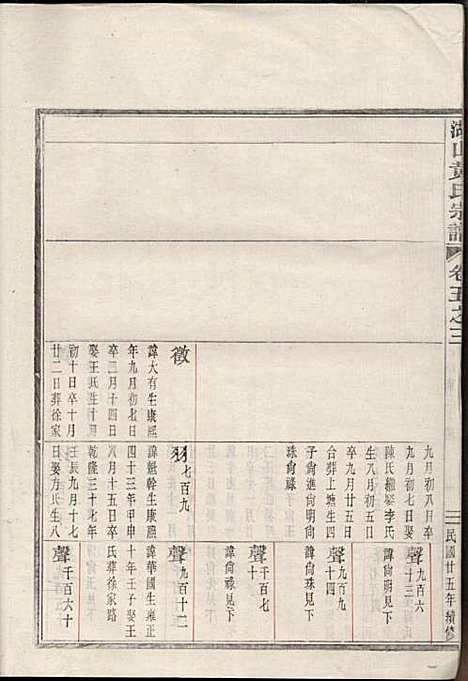 湖山黃氏宗譜
卷五之三
民國廿五年續修
徵
諱大有生康熙
年九月初七日
卒三月十四日
娶王氏生十月
初十日卒十月
廿二日葬徐家
九月初八月卒
九月初七日娶
陳氏繼娶李氏
生八月初五日
卒九月廿五日
合葬上塘生四
子尙進尙明尙
珠尙祿
羽七百九
諱魁幹生康熙
四十三年甲申
八月十五日卒
乾隆三十七年
壬辰九月十七
日娶方氏生八
聲九百六十三
諱尙明見下
聲九百九十四
諱尙珠見下
聲千百七十
諱尙祿見下
聲九百十二
諱華國生雍正
十年壬子娶王
氏葬徐家路
聲千百六十